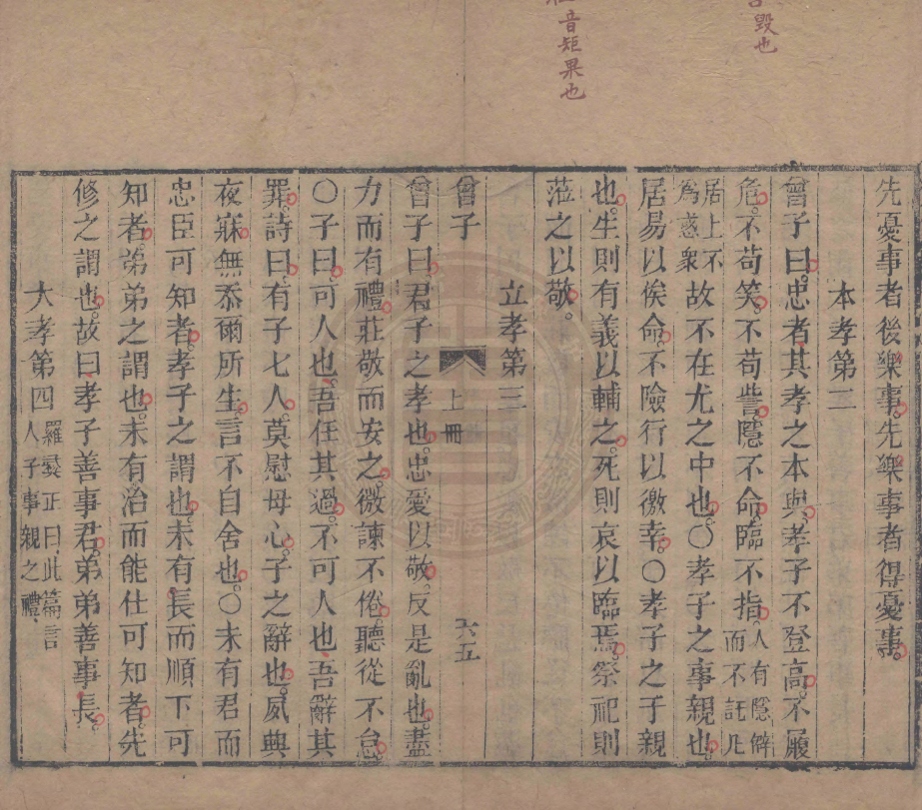 毀也
音矩果也
先憂事者後樂事先樂事者得憂事
本孝第二
曾子曰忠者其孝之本與孝子不登高不履
危不苟笑不苟訾隱不命臨不指人有隱僻而不託凡
居上不為惑眾故不在尤之中也〇孝子之事親也
居易以俟命不險行以徼幸〇孝子之于親
也生則有義以輔之死則哀以臨焉祭祀則
蒞之以敬
立孝第三
曾子
上冊
六五
曾子曰君子之孝也忠愛以敬反是亂也盡
力而有禮莊敬而安之微諫不倦聽從不怠
〇子曰可人也吾任其過不可人也吾辭其
罪詩曰有子七人莫慰母心子之辭也夙興
夜寐無忝爾所生言不自舍也〇未有君而
忠臣可知者孝子之謂也未有長而順下可
知者弟弟之謂也未有治而能仕可知者先
修之謂也故曰孝子善事君弟弟善事長
大孝第四羅正曰此篇言人子事親之禮